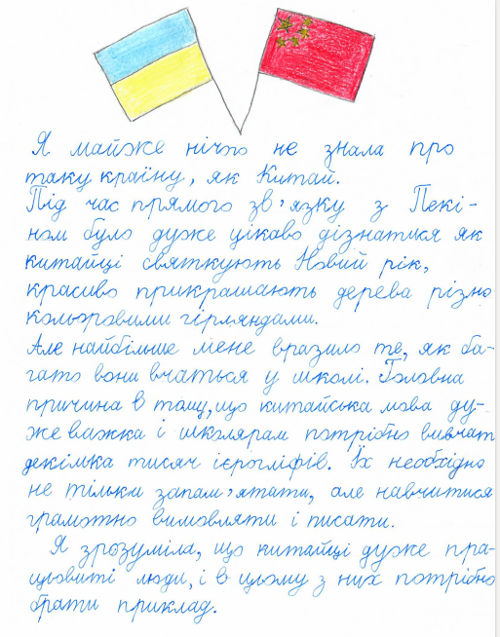 Я майже нічто не знала про
таку країну, як Китай.
Під час прямого зв'язку з Пекі-
ном було дуже цікаво дізнатися як
китайці святкують Новий рік,
красиво прикрашають дерева різно
кольоровими гірляндами.
Але найбільше мене вразило те, як ба-
гато вони вчаться у школі. Головна
причина в тому, що китайська мова ду-
же важка і школярам потрібно вивчат
декілька тисяч ієрогліфів. Їх необхідно
не тільки запам'ятати, але навчитися
грамотно вимовляти і писати.
Я зрозуміла, що китайці дуже пра-
цьовиті люди, і в цьому з них потрібно
брати приклад.